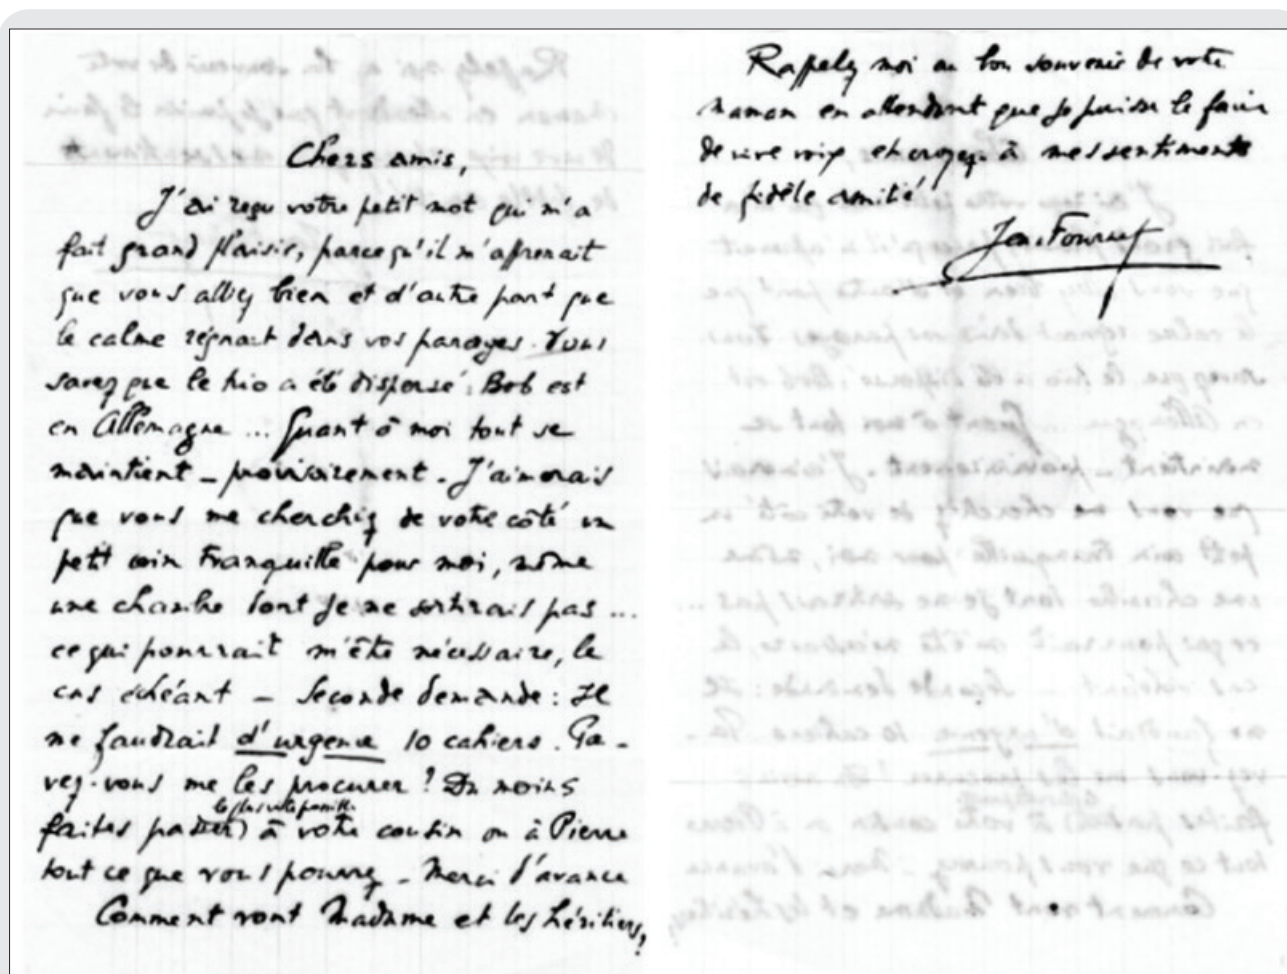 Chers amis,
J'ai reçu votre petit mot qui m'a
fait grand plaisir, parce qu'il m'apprenait
que vous alliez bien et d'autre part que
le calme régnait dans vos parages. Vous
savez que le trio a été dispersé : Bob est
en Allemagne ... Quant à moi tout se
maintient - provisoirement. J'aimerais
que vous me cherchiez de votre côté un
petit coin tranquille pour moi, même
une chambre dont je ne sortirais pas ...
ce qui pourrait m'être nécessaire, le
cas échéant - Seconde demande : Il
me faudrait d'urgence 10 cahiers. Pou-
vez-vous me les procurer ? Du moins
le plus vite possible
faites passer à votre cousin ou à Pierre
tout ce que vous pourrez - Merci d'avance
Comment vont Madame et les héritiers ?
Rappelez moi au bon souvenir de votre
maman en attendant que je puisse le faire
de vive voix et croyez à mes sentiments
de fidèle amitié